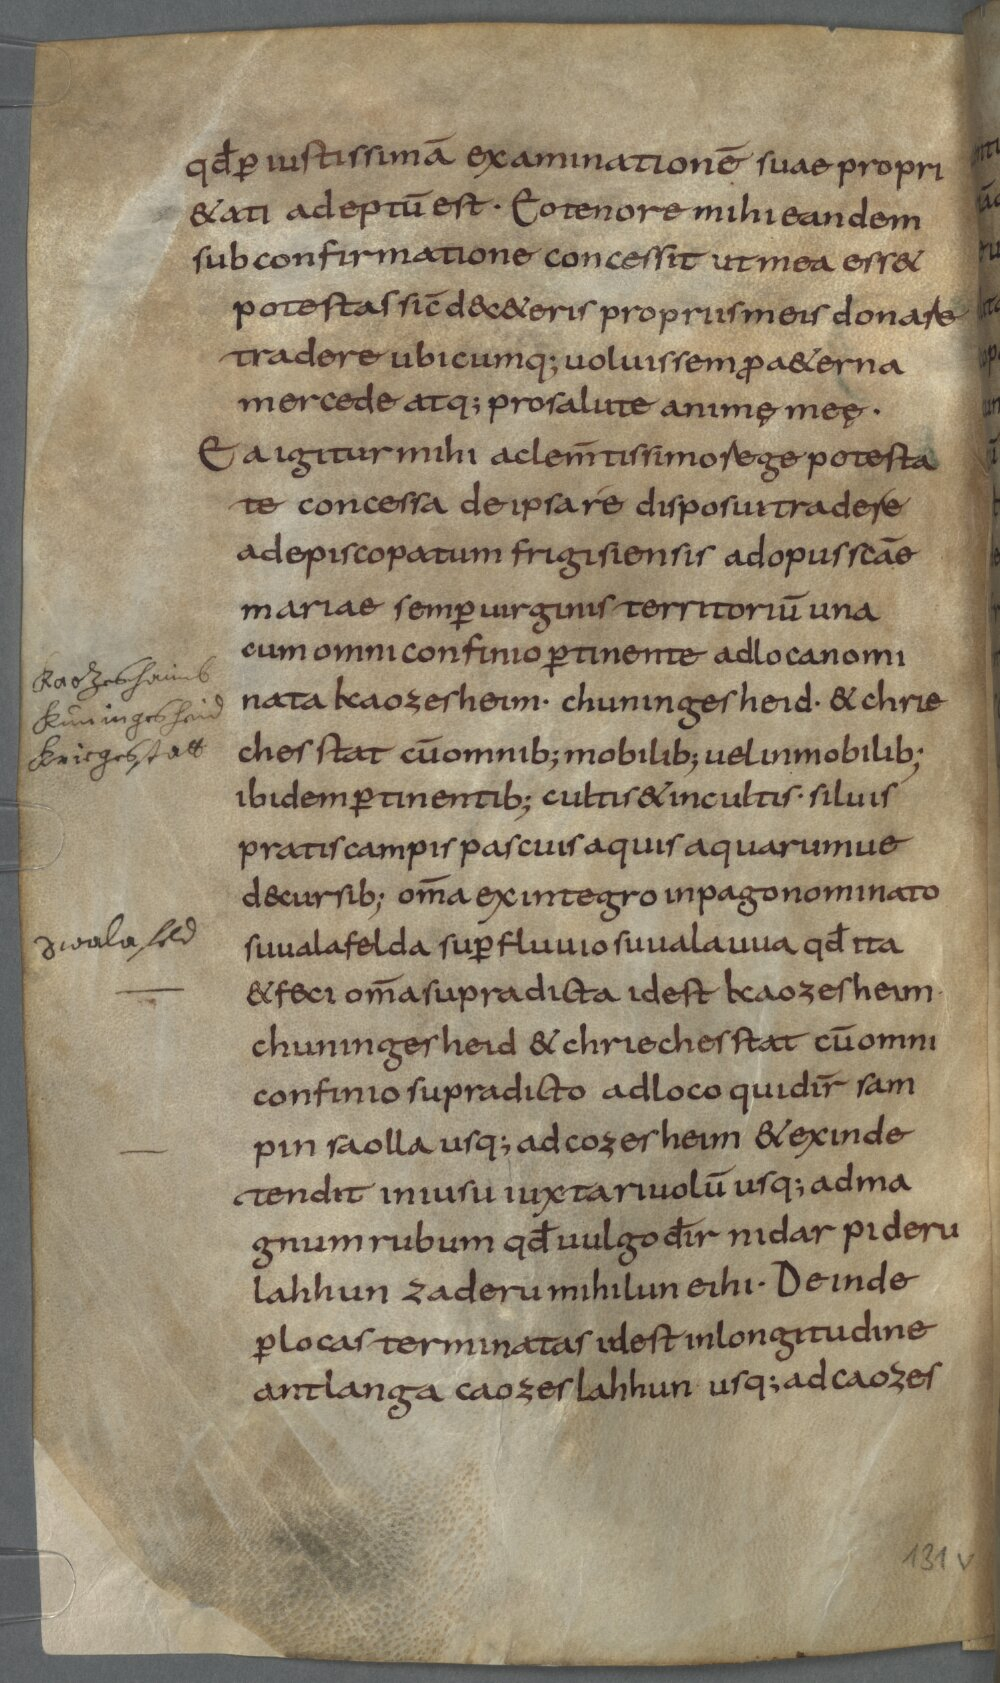 qđꝑ iustissimā examinationē suae propri
&ati adeptū est · Eo tenore mihi eandem
sub confirmatione concessit ut mea ess&
potestas sic̄ d&c&eris propriis meis donare
tradere ubicumq; uoluissem ꝓ a&erna
mercede atq; pro salute animę meę ·
Ea igitur mihi a clem̄tissimo rege potesta
te concessa de ipsa re disposui tradere
ad episcopatum frigisiensis ad opus scāe
mariae semꝑ uirginis territoriū una
cum omni confinio ꝑtinente ad loca nomi
nata kaozesheim · chuningesheid · & chrie
ches stat cū omnib; mobilib; uel inmobilib;
ibidem ꝑtinentib; cultis & incultis · siluis
pratis campis pascuis aquis aquarumue
d&cursib; om̄a ex integro in pago nominato
suualafelda suꝑ fluuio suualauua qđ ita
& feci om̄a supradicta id est kaozesheim ·
chuningesheid & chriechesstat cū omni
confinio supradicto ad loco qui dir̄ sam
pinsaolla usq; ad cozesheim & exinde
tendit in iusu iuxta riuolū usq; ad ma
gnum rubum qđ uulgo dir̄ nidar pideru
lahhun zaderu mihilun eihi · Deinde
ꝑ locas terminatas id est in longitudine
antlanga caozeslahhun usq; ad caozes
Kaotzeshaimb
Kuningesheid
Kriegsstatt
Swalafeld
131 v